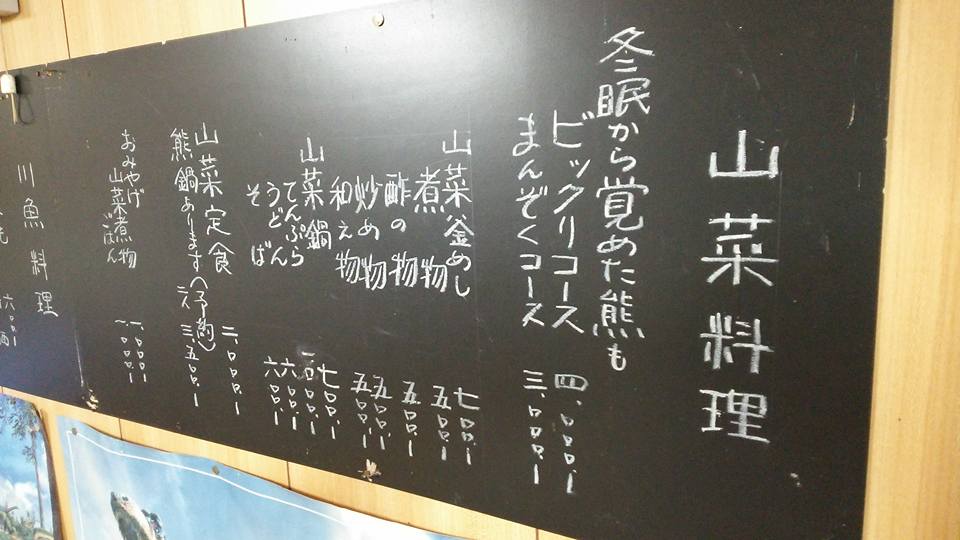 山菜料理
冬眠から覚めた熊も
ビックリコース 四、〇〇〇.ー
まんぞくコース 三、〇〇〇.ー
山菜釜めし 七〇〇.ー
煮物 五〇〇.ー
酢の物 五〇〇.ー
炒め物 五〇〇.ー
和え物 五〇〇.ー
山菜鍋 七〇〇.ー
てんぷら
うどん 六〇〇.ー
そば 六〇〇.ー
山菜定食 二、〇〇〇.ー
熊鍋あります(予約) 三、五〇〇.ー
おみやげ
山菜煮物 一、〇〇〇.ー
ごはん
川魚料理